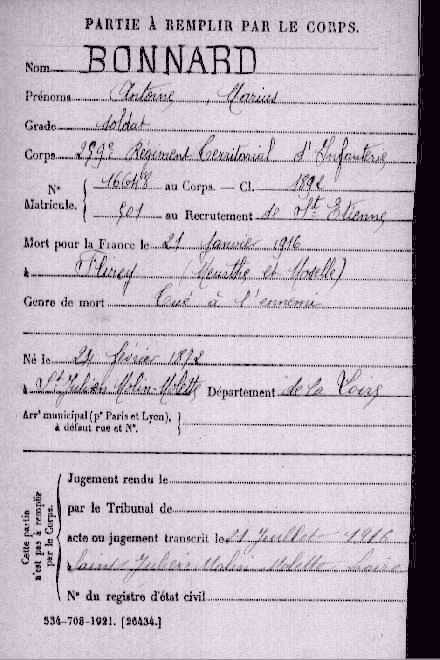 PARTIE À REMPLIR PAR LE CORPS.
Nom BONNARD
Prénoms Antoine, Marius
Grade soldat
Corps 299e Régiment Territorial d'Infanterie
N° Matricule. { 16648 au Corps. — Cl. 1892
501 au Recrutement de St Etienne
Mort pour la France le 21 Janvier 1916
à Flirey (Meurthe et Moselle)
Genre de mort Tué à l'ennemi
Né le 24 février 1892
à St Julien Molin Molette Département de la Loire
Arrt municipal (pr Paris et Lyon), à défaut rue et N°. }
Cette partie n'est pas à remplir par le Corps.
Jugement rendu le
par le Tribunal de
acte ou jugement transcrit le 21 Juillet 1916
à Saint Julien Molin Molette Loire
N° du registre d'état civil
534-708-1921. [26434.]